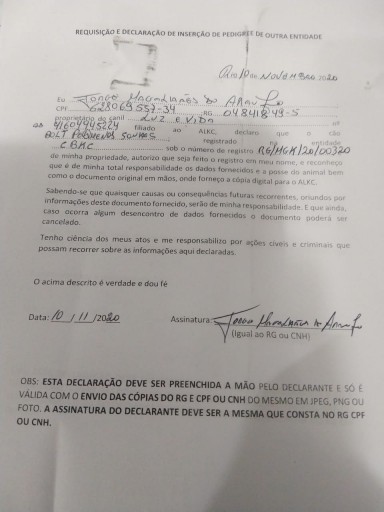 REQUISIÇÃO E DECLARAÇÃO DE INSERÇÃO DE PEDIGREE DE OUTRA ENTIDADE
10 de NOVEMBRO 2020
Eu Magalhães do
CPF RG
proprietário do canil LUZ e VIDA nº
filiado ao ALKC, declaro que o cão
registrado na entidade
CBKC sob o número de registro RG/MGK/20/00320
de minha propriedade, autorizo que seja feito o registro em meu nome, e reconheço
que é de minha total responsabilidade os dados fornecidos e a posse do animal bem
como o documento original em mãos, onde forneço a cópia digital para o ALKC.
Sabendo-se que quaisquer causas ou consequências futuras recorrentes, oriundos por
informações deste documento fornecido, serão de minha responsabilidade. E que ainda,
caso ocorra algum desencontro de dados fornecidos o documento poderá ser
cancelado.
Tenho ciência dos meus atos e me responsabilizo por ações cíveis e criminais que
possam recorrer sobre as informações aqui declaradas.
O acima descrito é verdade e dou fé
Data: 10 / 11 /2020 Assinatura:
(igual ao RG ou CNH)
OBS: ESTA DECLARAÇÃO DEVE SER PREENCHIDA A MÃO PELO DECLARANTE E SÓ É
VÁLIDA COM O ENVIO DAS CÓPIAS DO RG E CPF OU CNH DO MESMO EM JPEG, PNG OU
FOTO. A ASSINATURA DO DECLARANTE DEVE SER A MESMA QUE CONSTA NO RG CPF
OU CNH.